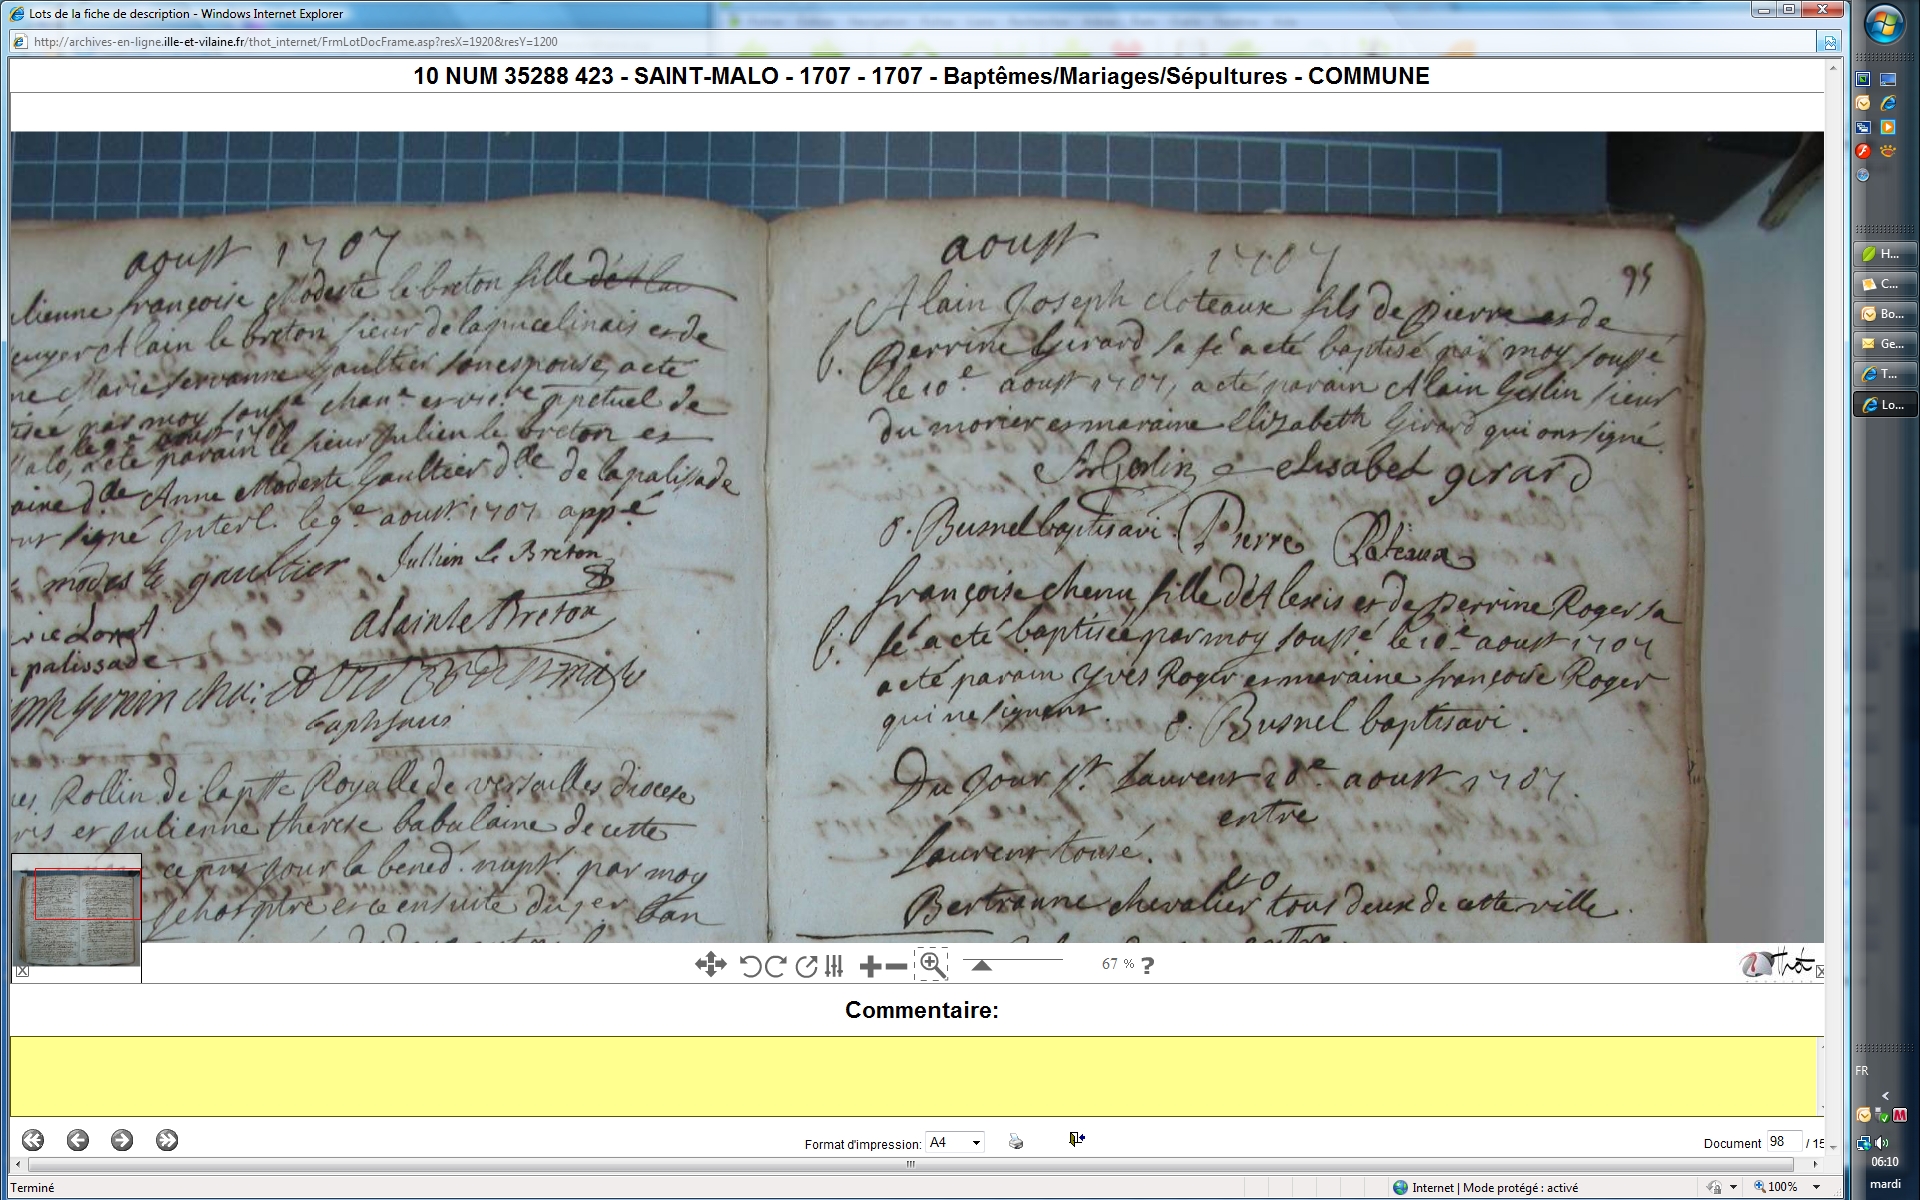 Lots de la fiche de description - Windows Internet Explorer
http://archives-en-ligne.ille-et-vilaine.fr/thot_internet/FrmLotDocFrame.asp?resX=1920&resY=1200
10 NUM 35288 423 - SAINT-MALO - 1707 - 1707 - Baptêmes/Mariages/Sépultures - COMMUNE
aoust 1707
lienne françoise Modeste le breton fille
Alain le breton sieur de lapucelinais et de
Marie servanne Gaultier son espouse, a été
par moy soussé chane et vicre ppetuel de
a été parain le sieur Julien le breton et
dlle Anne Modeste Gaultier dlle de la palissade
signé Interl. le 9e aoust 1707 appé
modeste gaultier Jullien Le Breton
alain le Breton
palissade
baptisavi
Rollin de la ptte Royalle de versailles diocese
et Julienne therese babulaine de cette
pour la bened. nupt. par moy
ptre et ce ensuite du 1er ban
aoust 1707
95
Alain Joseph cloteaux fils de Pierre et de
b. Perrine Girard sa fé a eté baptisé par moy soussé
le 10e aoust 1707, a eté parain Alain Geslin sieur
du morier et maraine Elizabeth Girard qui ont signé
elisabet girard
Busnel baptisavi Pierre
françoise chenu fille d'Alexis et de perrine Roger sa
b. fé a eté baptisée par moy soussé le 10e aoust 1707
a eté parain Yves Roger et maraine françoise Roger
qui ne signent. Busnel baptisavi.
Du Jour st. Laurent 10e aoust 1707.
entre
Laurent tousé.
et
Bertranne chevalier tous deux de cette ville.
entre
67 % ?
Thot
Commentaire:
Format d'impression: A4
Document 98 / 15
Terminé
Internet | Mode protégé : activé
100%
H...
C...
Bo...
Ge...
T...
Lo...
FR
06:10
mardi